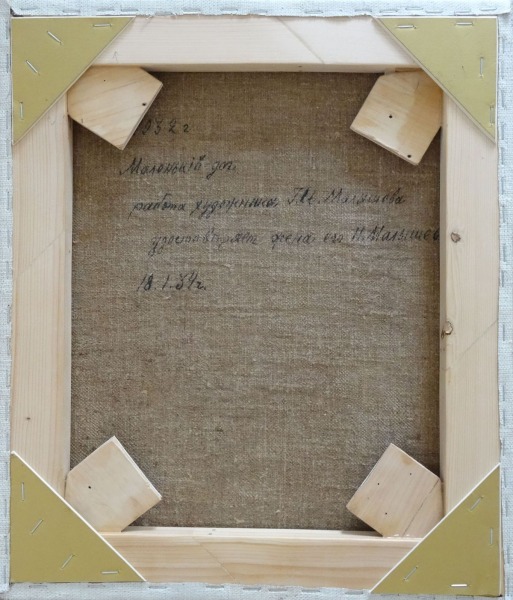 932 г
Маленький
работа художника Г.М. Малышова
удостоверяет жена его Н. Малышов
18.1.34г.